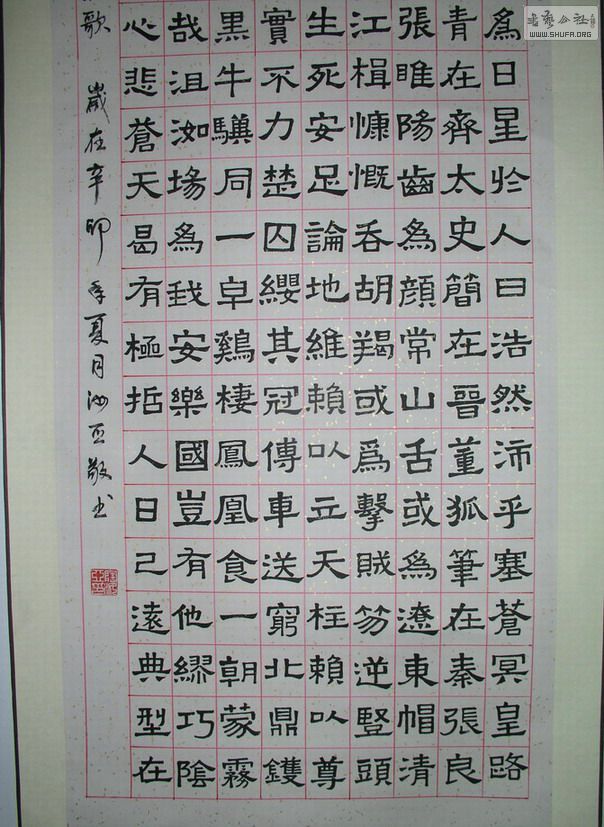 為日星扵人曰浩然沛乎塞蒼冥皇路
青在齊太史簡在晉董狐筆在秦張良
張睢陽齒為顏常山舌或為遼東帽清
江楫慷慨吞胡羯或爲擊賊笏逆豎頭
生死安足論地維賴以立天柱賴以尊
實不力楚囚纓其冠傳車送窮北鼎鑊
黑牛驥同一皁鷄棲鳳凰食一朝蒙霧
哉沮洳場為我安樂國豈有他繆巧陰
心悲蒼天曷有極哲人日已遠典型在
歌 歲在辛卯年夏月亞敬書
書藝公社
WWW.SHUFA.ORG